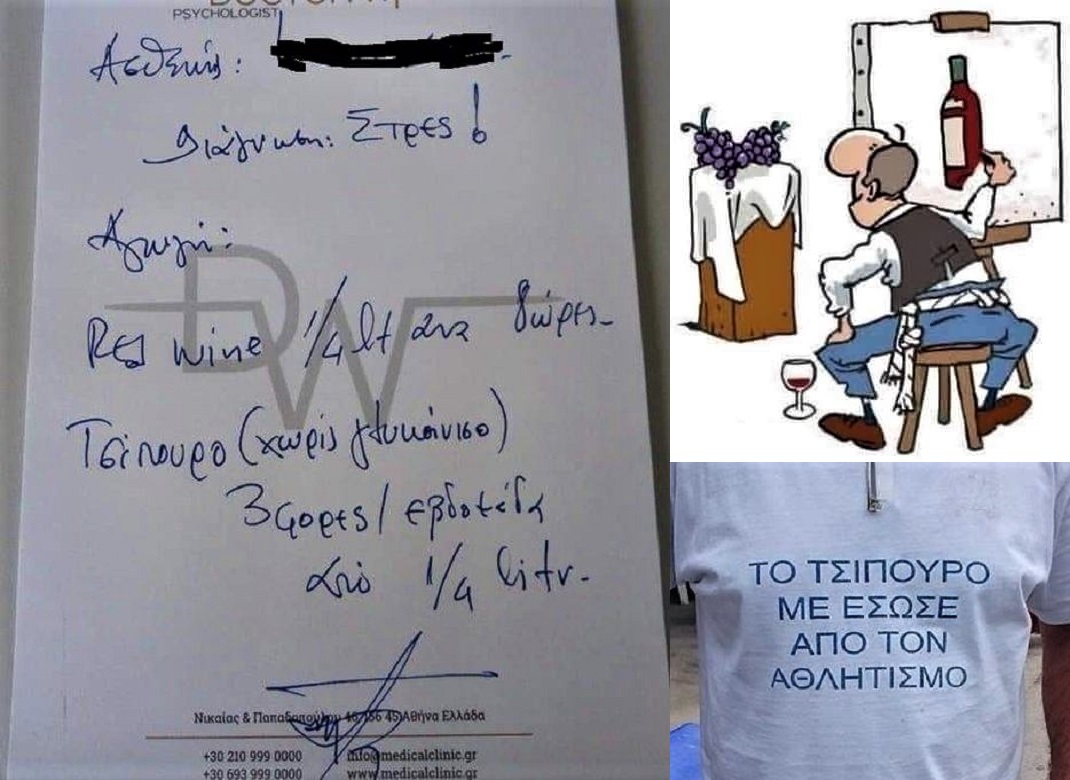 PSYCHOLOGIST
Ασθενής:
Διάγνωση: Στρες!
Αγωγή:
Red wine 1/4 lt ανα 8ώρες
Τσίπουρο (χωρίς γλυκάνισο)
3 φορες / εβδομάδα
από 1/4 litr.
DW
Νικαίας & Παπαδοπούλου Αθήνα Ελλάδα
+30 210 999 0000 info@medicalclinic.gr
+30 693 999 0000 www.medicalclinic.gr
ΤΟ ΤΣΙΠΟΥΡΟ
ΜΕ ΕΣΩΣΕ
ΑΠΟ ΤΟΝ
ΑΘΛΗΤΙΣΜΟ